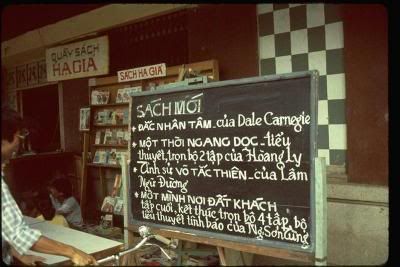 QUẦY SÁCH
HẠ GIÁ
SÁCH HẠ GIÁ
SÁCH MỚI
* ĐẮC NHÂN TÂM - của Dale Carnegie
* MỘT THỜI NGANG DỌC - tiểu
thuyết, trọn bộ 2 tập của Hoàng Ly
* Tình sử VÕ TẮC THIÊN - của Lâm
Ngữ Đường
* MỘT MÌNH NƠI ĐẤT KHÁCH
tập cuối, kết thúc trọn bộ 4 tập, bộ
tiểu thuyết tình báo của Ng Sơn Tùng